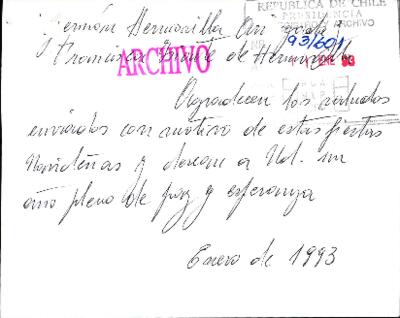 REPUBLICA DE CHILE
PRESIDENCIA
ARCHIVO
93/601
ENE 93
Hermosilla
ARCHIVO
Francisca de Hermosilla
Agradecen los saludos
enviados con motivo de estas fiestas
Navideñas y desean a Ud. un
año pleno de paz y esperanza
Enero de 1993